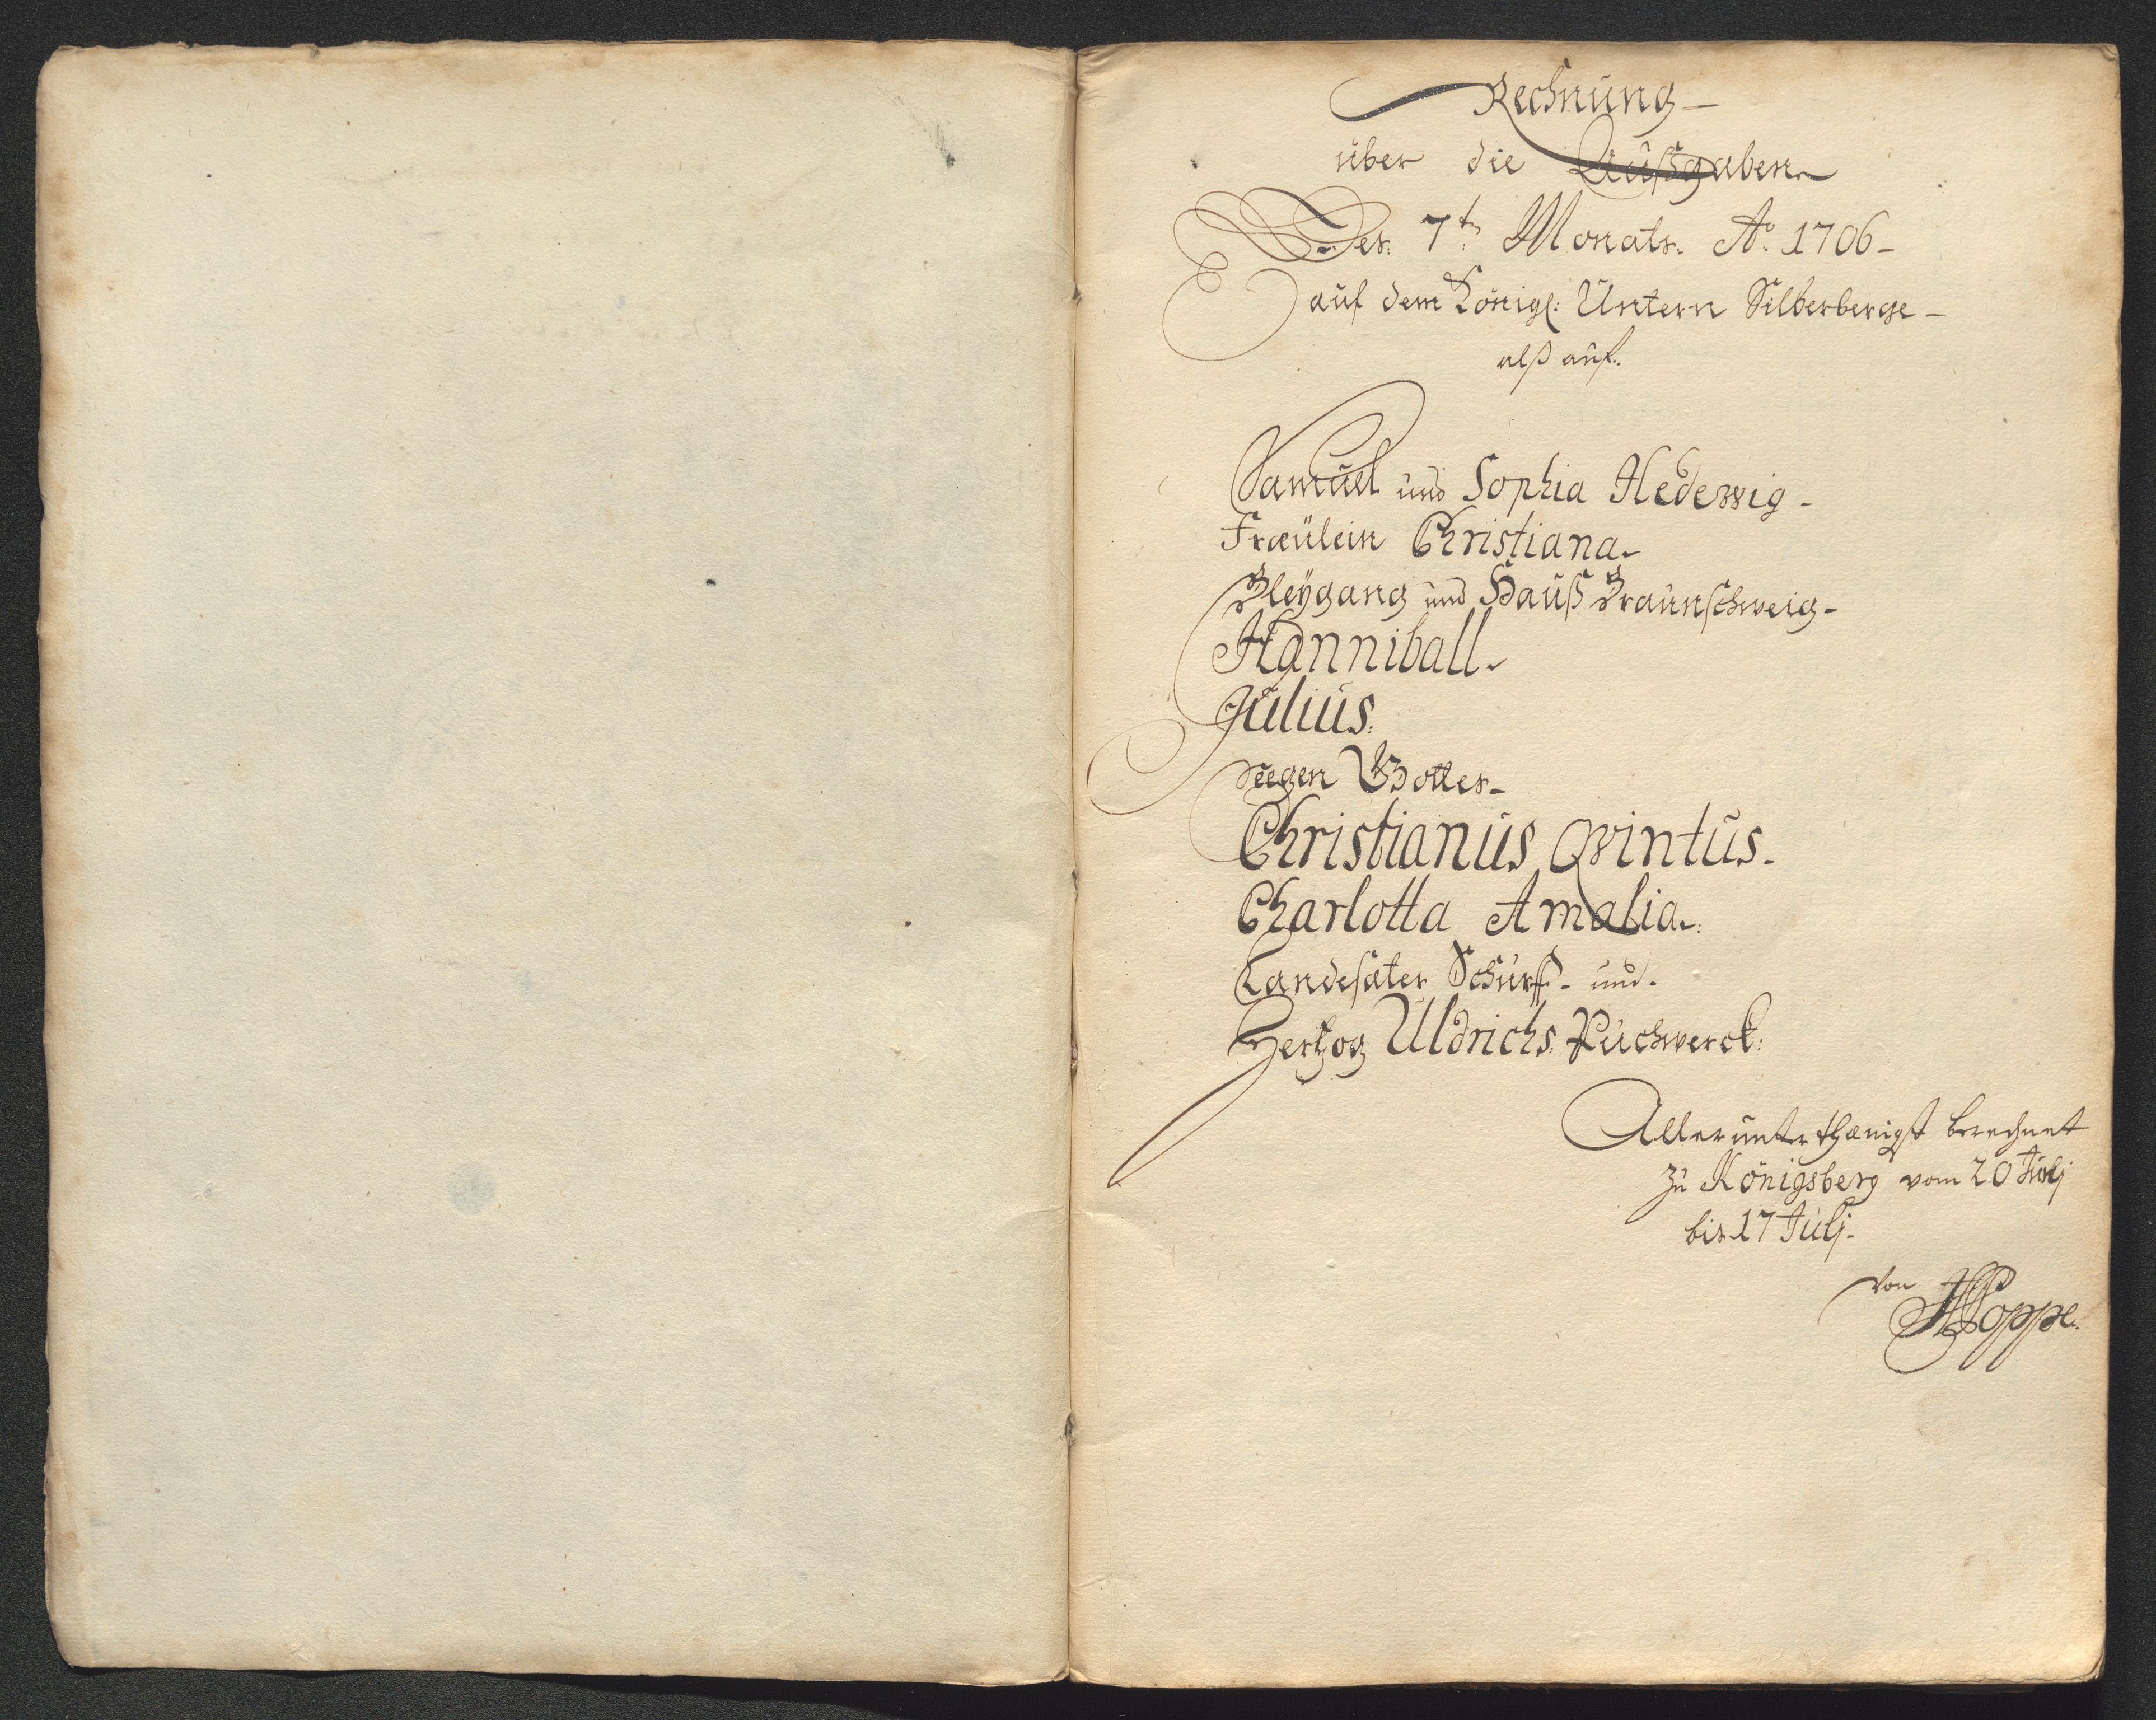 Rechnung
über die Außgaben
Des 7t Monats. Ao. 1706
auf dem Königl: Untern Silberberge
alß auf.
Samuel und Sophia Hedewig
Fraülein Christiana
Bleÿgang und Hauß Braunschweig
Hanniball
Julius
Seegen Gottes
Christianus Qvintus
Charlotta Amalia
Landesäter Schürff und
Hertzog Uldrichs Puchwerck:
Allerunterthænigst berechnet
zu Königsberg vom 20
bis 17 Julj
von